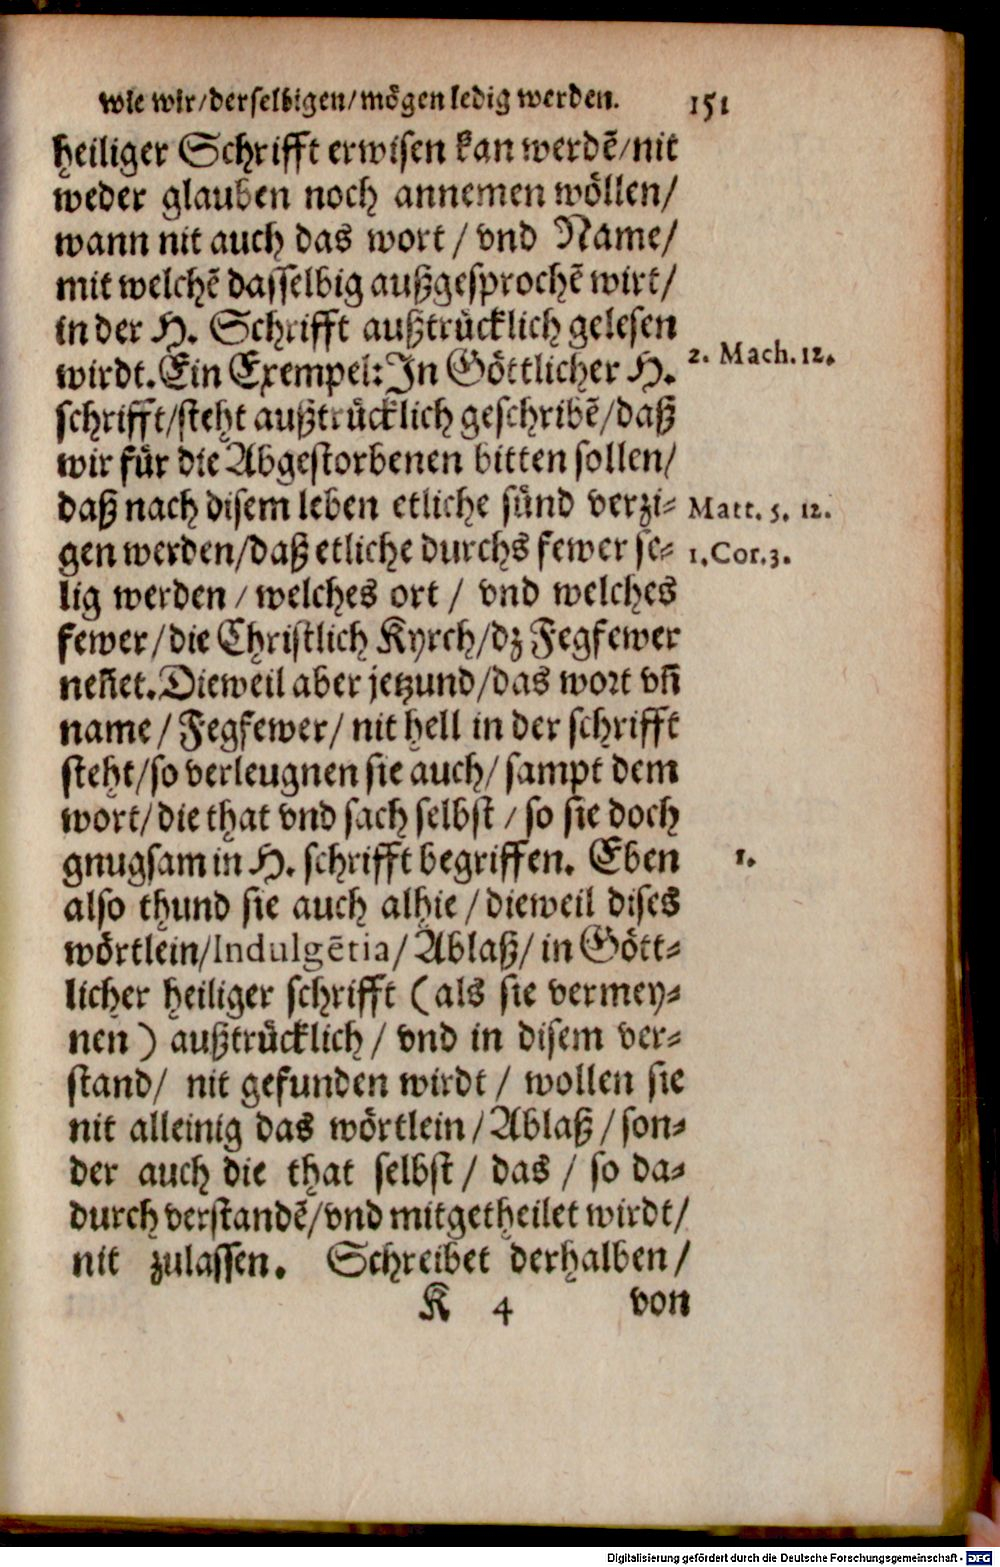 wie wir/derselbigen/mögen ledig werden. 151
heiliger Schrifft erwisen kan werdẽ/nit
weder glauben noch annemen wöllen/
wann nit auch das wort / vnd Name/
mit welchẽ dasselbig außgesprochẽ wirt/
in der H. Schrifft außtrücklich gelesen
wirdt. Ein Exempel: In Göttlicher H.
2. Mach. 12.
schrifft/steht außtrücklich geschribẽ/daß
wir für die Abgestorbenen bitten sollen/
daß nach disem leben etliche sünd verzi-
Matt. 5. 12.
gen werden/daß etliche durchs fewer se-
1. Cor. 3.
lig werden / welches ort / vnd welches
fewer/die Christlich Kyrch/dz Fegfewer
neñet. Dieweil aber jetzund/das wort vñ
name / Fegfewer/ nit hell in der schrifft
steht/so verleugnen sie auch/ sampt dem
wort/die that vnd sach selbst / so sie doch
gnugsam in H. schrifft begriffen. Eben
1.
also thund sie auch alhie / dieweil dises
wörtlein/Indulgẽtia/ Ablaß/ in Gött-
licher heiliger schrifft (als sie vermey-
nen) außtrücklich / vnd in disem ver-
stand/ nit gefunden wirdt / wollen sie
nit alleinig das wörtlein / Ablaß / son-
der auch die that selbst / das / so da-
durch verstandẽ/vnd mitgetheilet wirdt/
nit zulassen. Schreibet derhalben /
K 4 von
Digitalisierung gefördert durch die Deutsche Forschungsgemeinschaft - DFG